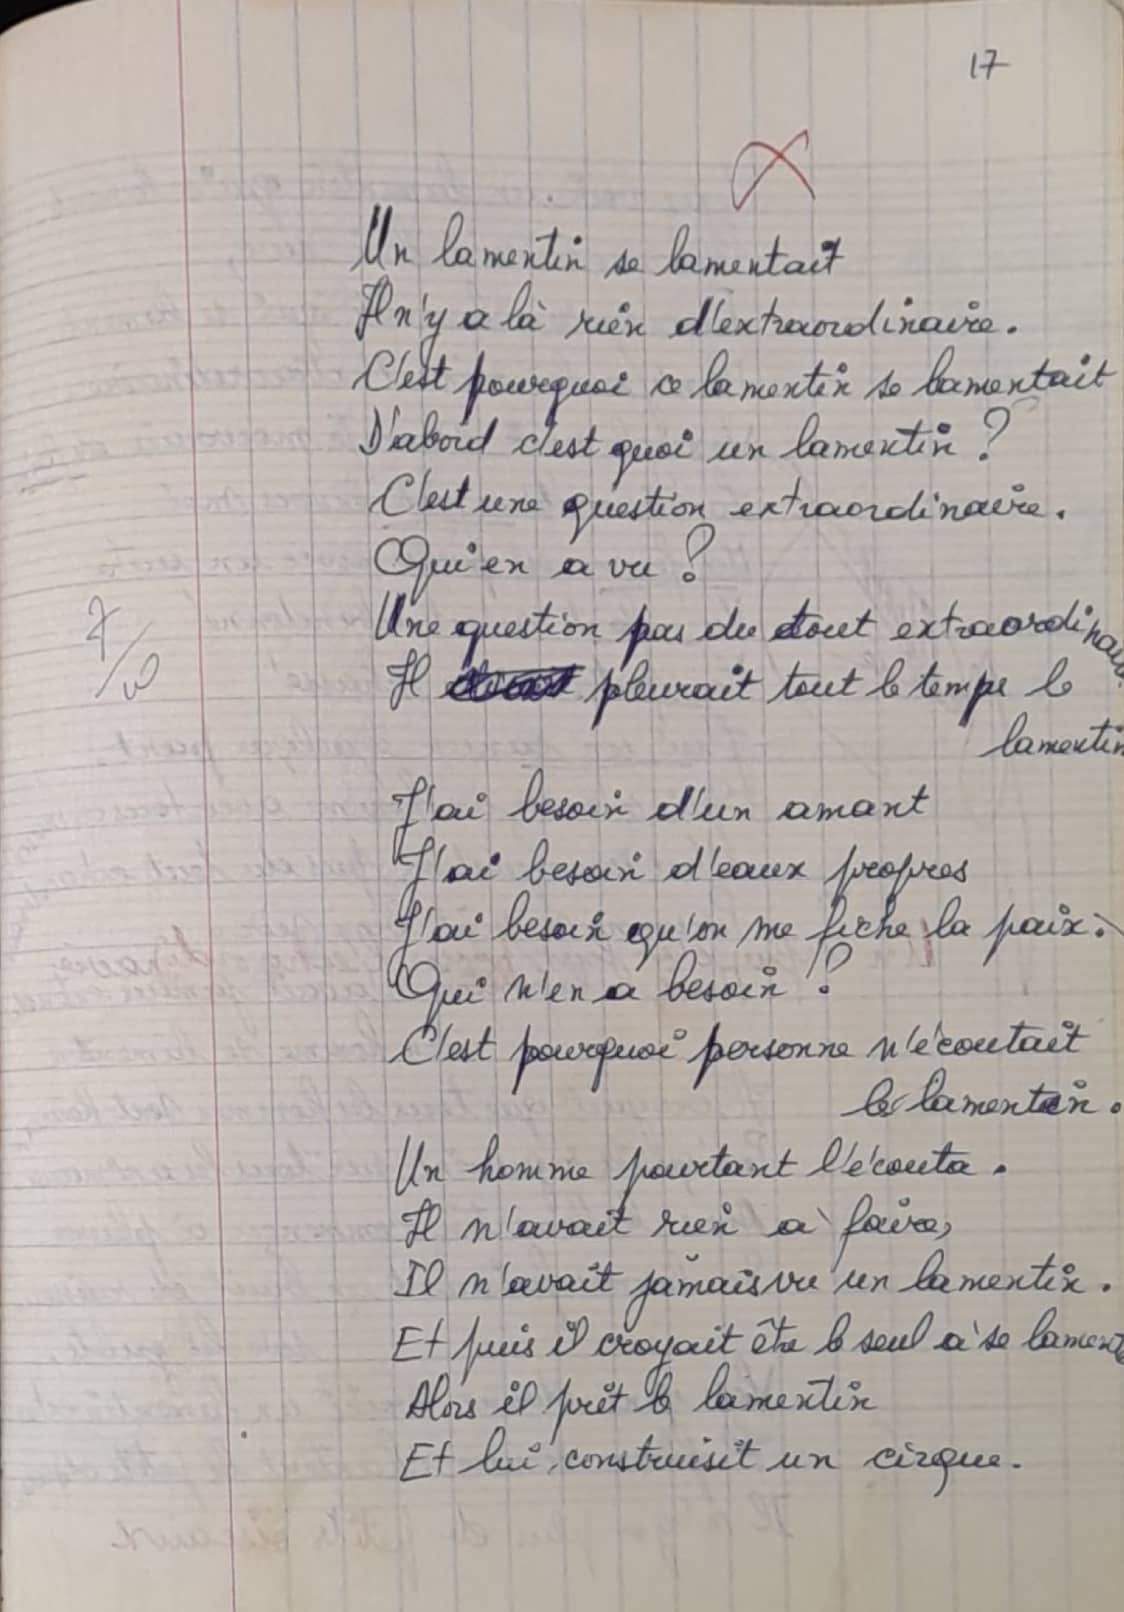 17
Un lamentin se lamentait
Il n'y a là rien d'extraordinaire.
C'est pourquoi ce lamentin se lamentait
D'abord c'est quoi un lamentin ?
C'est une question extraordinaire.
Qui en a vu ?
Une question pas du tout extraordinaire.
Il pleurait tout le temps le
lamentin
J'ai besoin d'un amant
J'ai besoin d'eaux propres
J'ai besoin qu'on me fiche la paix.
Qui n'en a besoin ?
C'est pourquoi personne n'écoutait
le lamentin.
Un homme pourtant l'écouta.
Il n'avait rien à faire,
Il n'avait jamais vu un lamentin.
Et puis il croyait être le seul à se lamenter
Alors il prit le lamentin
Et lui construisit un cirque.